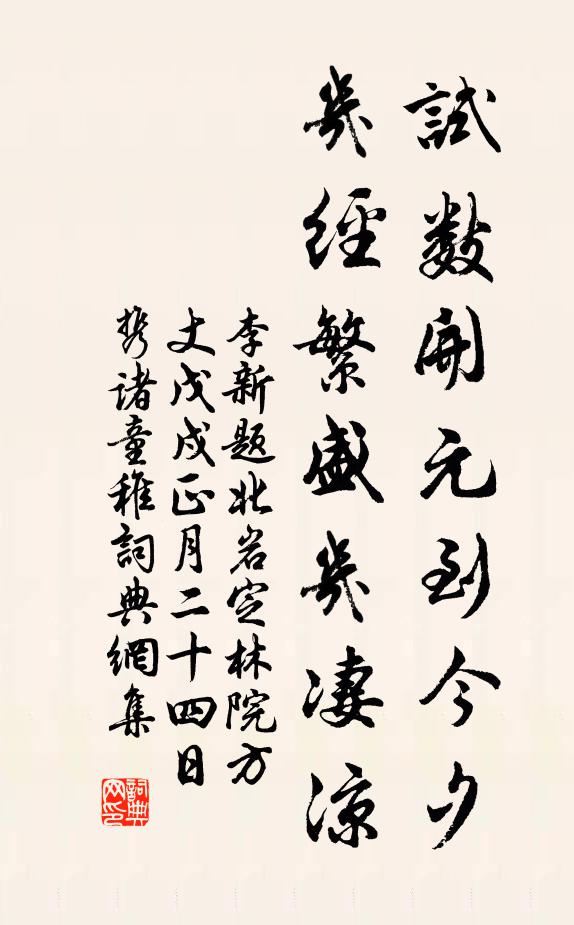 試數開元到今夕
幾經繁盛幾凄涼
李新題北岩定林院方
丈戊戌正月二十四日
携諸童稚詞典網集
詞典
网印